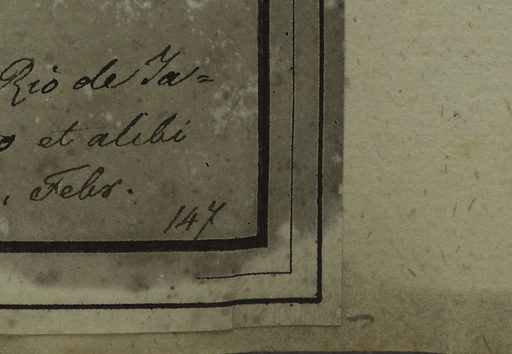 Rio de Ja=
o et alibi
. Febr.
147